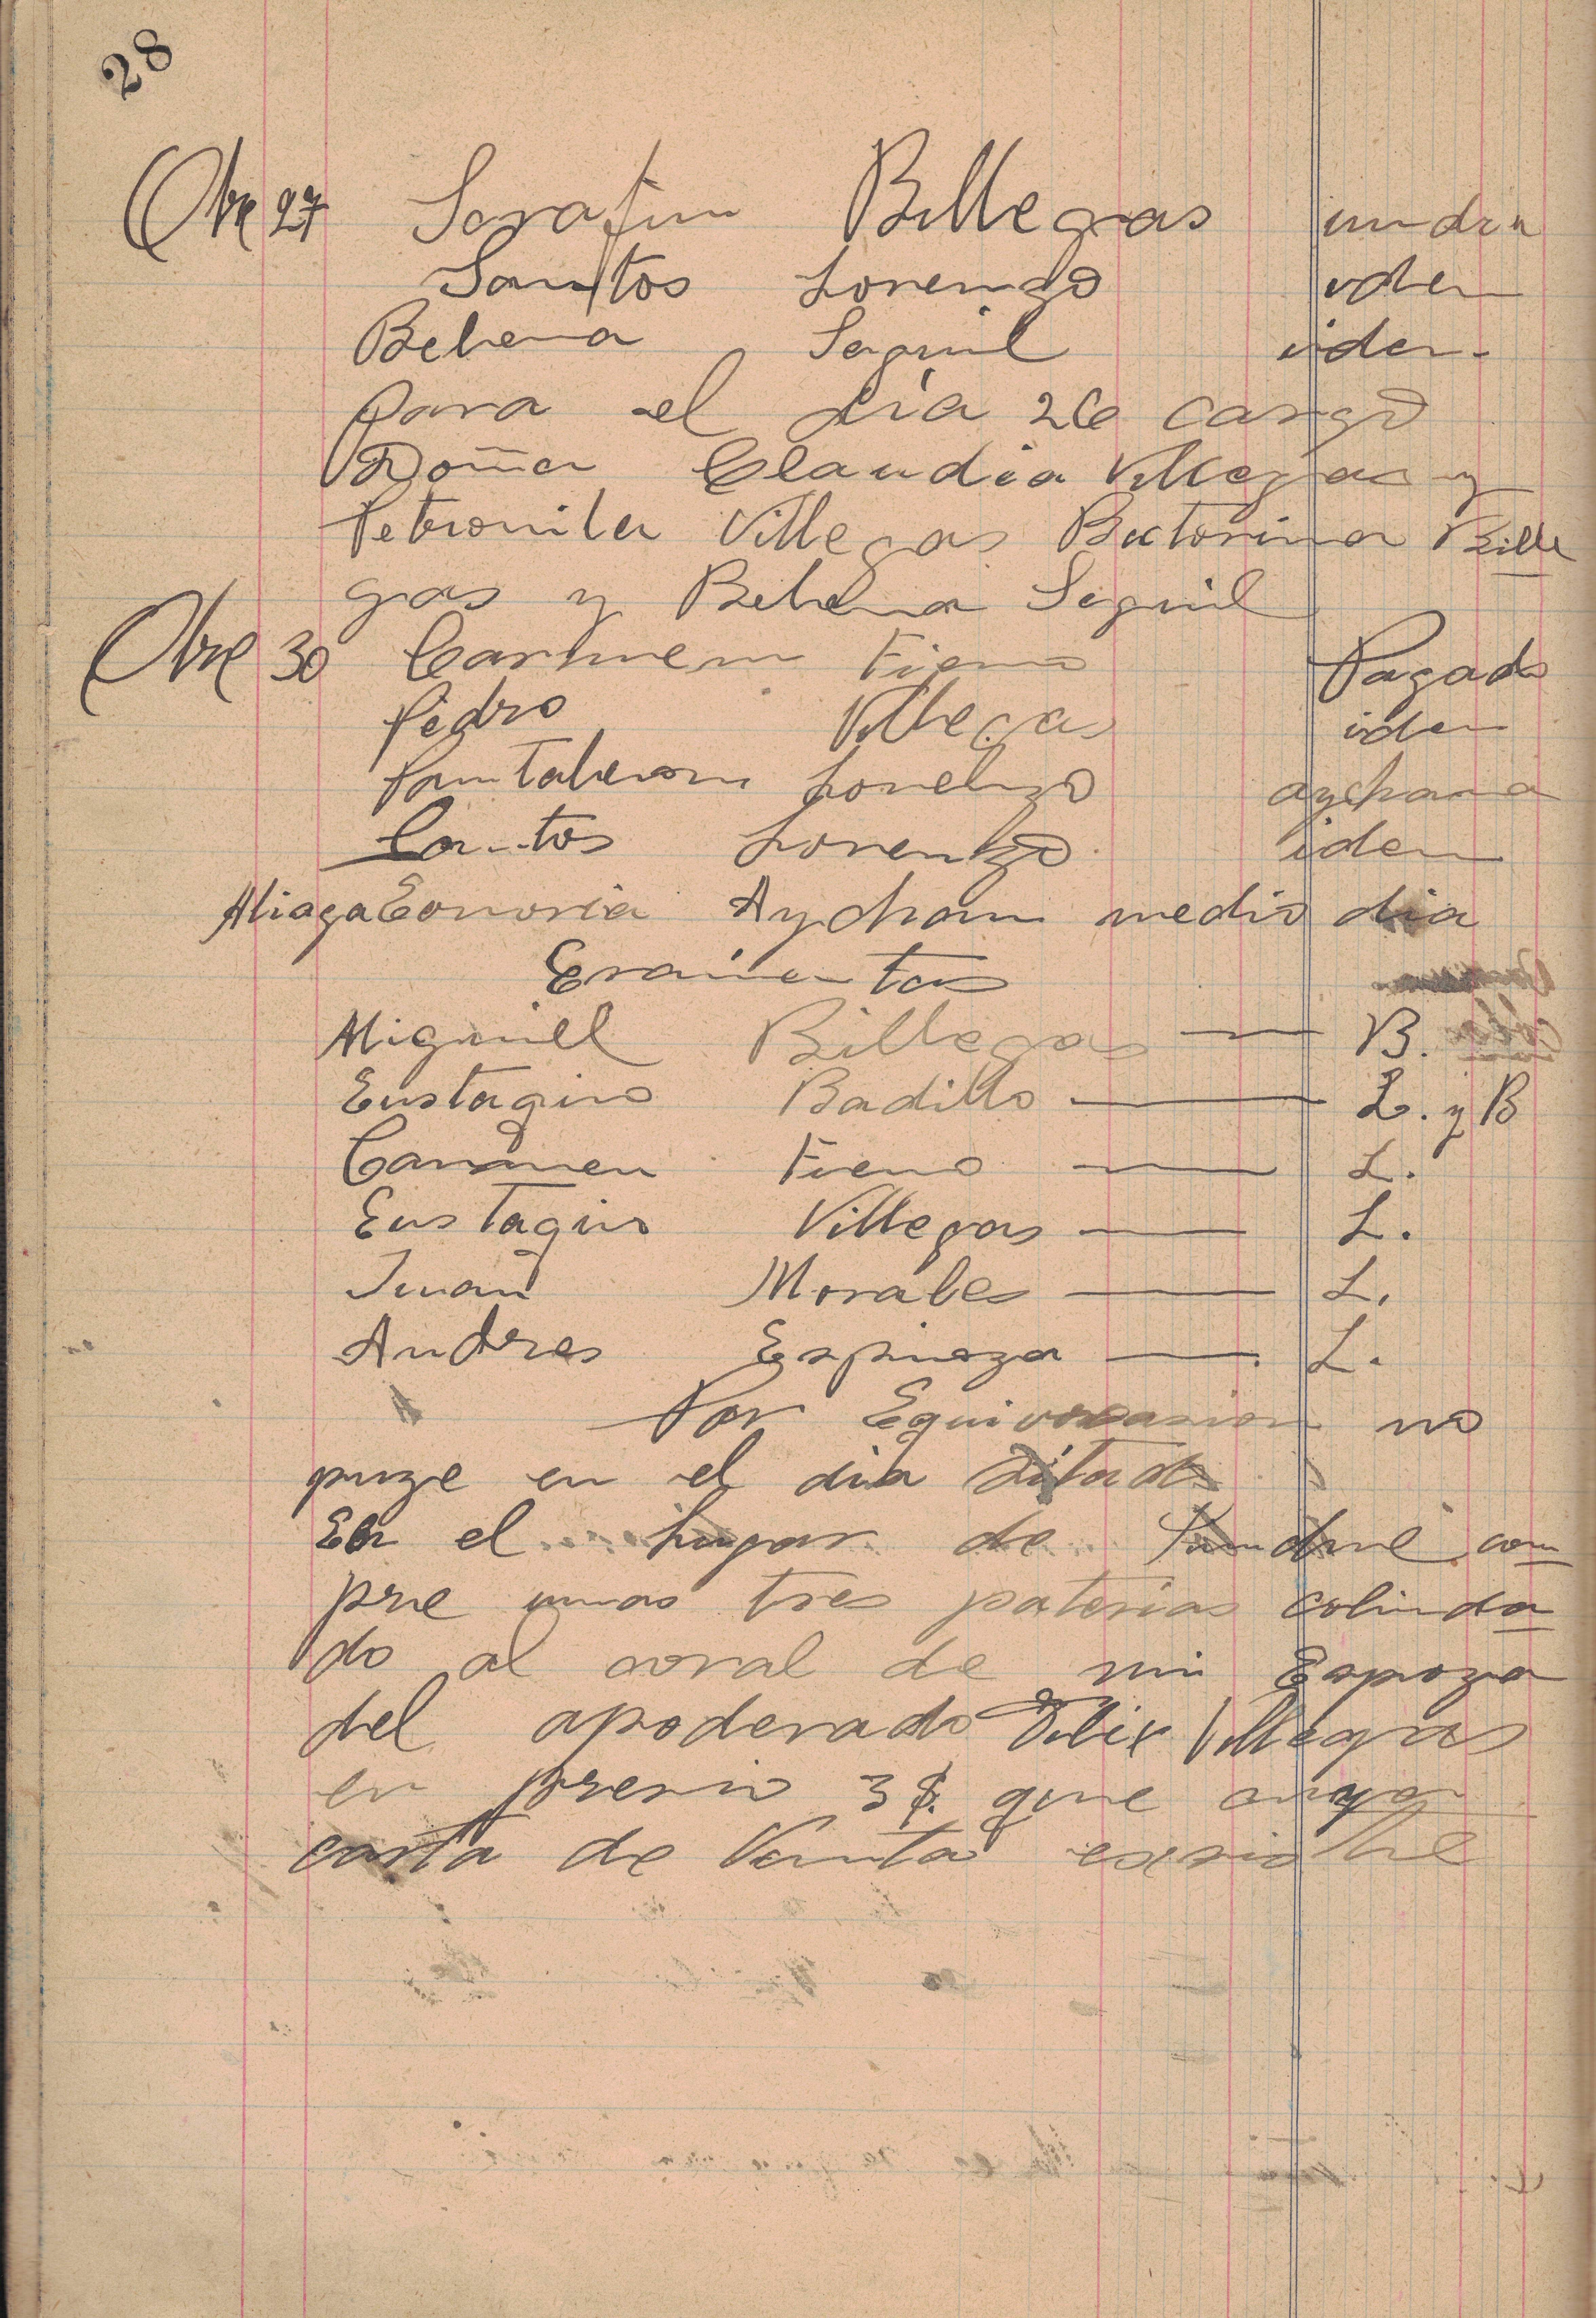 28
Obre 27 Serafin Billegas un dia
Santos Lorenzo iden
Belena Seguil iden
para el dia 26 cargo
Doña Claudia Villegas y
Petronila Villegas Bictorina Bille
gas y Belena Seguil
Obre 30 Carmen Fieno Pagado
Pedro Villegas iden
Pantaleon Lorenzo aychana
Santos Lorenzo iden
Aliaga Eonoria Aychan medio dia
Miguill Billegas — B.
Eustaqio Badillo — L. y B
Carmen Fieno — L.
Eustaqio Villegas — L.
Juan Morales — L.
Andres Espinoza — L.
Por Equivocasion no
puze en el dia Sitado
En el lugar de com
pre unas tres paterias colinda
do al coral de mi Espoza
del apoderado Felix Villegas
en presio 3 $. que
carta de Venta